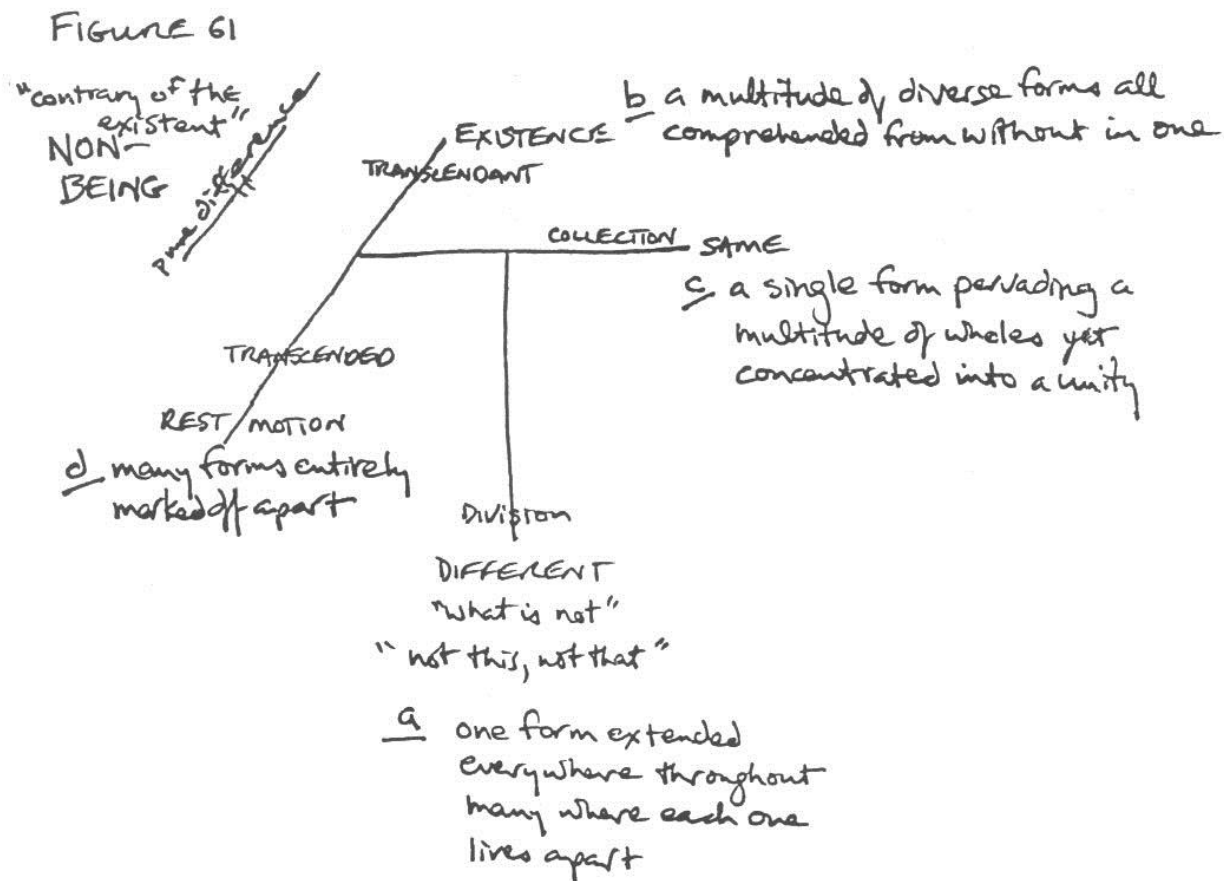 FIGURE 61
"contrary of the
existent"
NON-
BEING
pure difference
EXISTENCE
TRANSCENDANT
b a multitude of diverse forms all
comprehended from without in one
COLLECTION
SAME
c a single form pervading a
multitude of wholes yet
concentrated into a unity
TRANSCENDED
REST / MOTION
d many forms entirely
marked off apart
Division
DIFFERENT
"what is not"
"not this, not that"
a one form extended
everywhere throughout
many where each one
lives apart